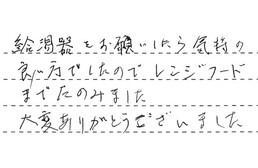 給湯器をお願いしたら気持の
良い方でしたので レンジフード
までたのみました
大変ありがとうございました